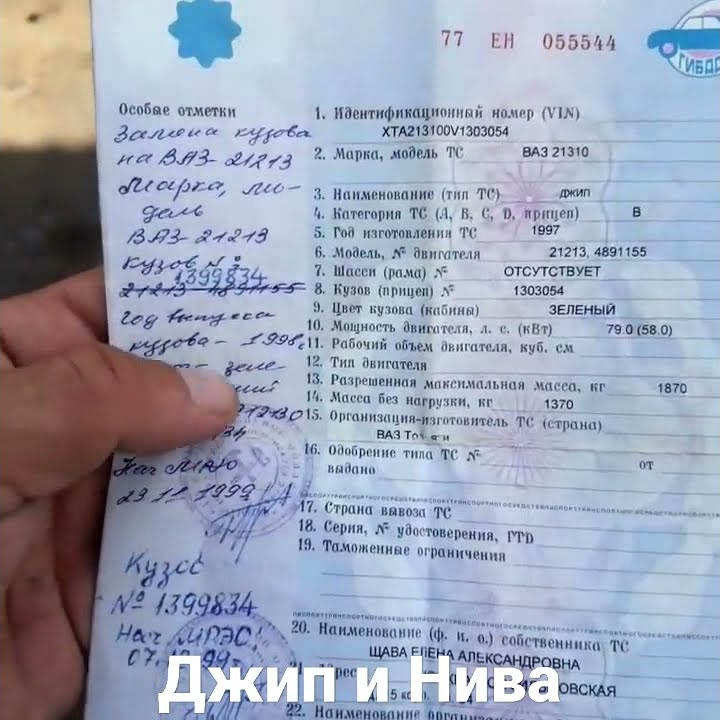 77 ЕН 055544
ГИБДД
Особые отметки
Замена кузова
на ВАЗ-21213
Марка, мо-
дель
ВАЗ-21213
Кузов №
1399834
21213-4891155
год выпуска
кузова - 1998г
зеле-
134
Нач МРЭО
23 11 1999
Кузов
№ 1399834
Нач МРЭО
1. Идентификационный номер (VIN)
XTA213100V1303054
2. Марка, модель ТС ВАЗ 21310
3. Наименование (тип ТС) джип
4. Категория ТС (A, B, C, D, прицеп) B
5. Год изготовления ТС 1997
6. Модель, № двигателя 21213, 4891155
7. Шасси (рама) № ОТСУТСТВУЕТ
8. Кузов (прицеп) № 1303054
9. Цвет кузова (кабины) ЗЕЛЕНЫЙ
10. Мощность двигателя, л. с. (кВт) 79.0 (58.0)
11. Рабочий объем двигателя, куб. см
12. Тип двигателя
13. Разрешенная максимальная масса, кг 1870
14. Масса без нагрузки, кг 1370
15. Организация-изготовитель ТС (страна)
ВАЗ
16. Одобрение типа ТС № от
выдано
17. Страна вывоза ТС
18. Серия, № удостоверения, ГТD
19. Таможенные ограничения
20. Наименование (ф. и. о.) собственника ТС
ЩАВА ЕЛЕНА АЛЕКСАНДРОВНА
22. Наименование
Джип и Нива